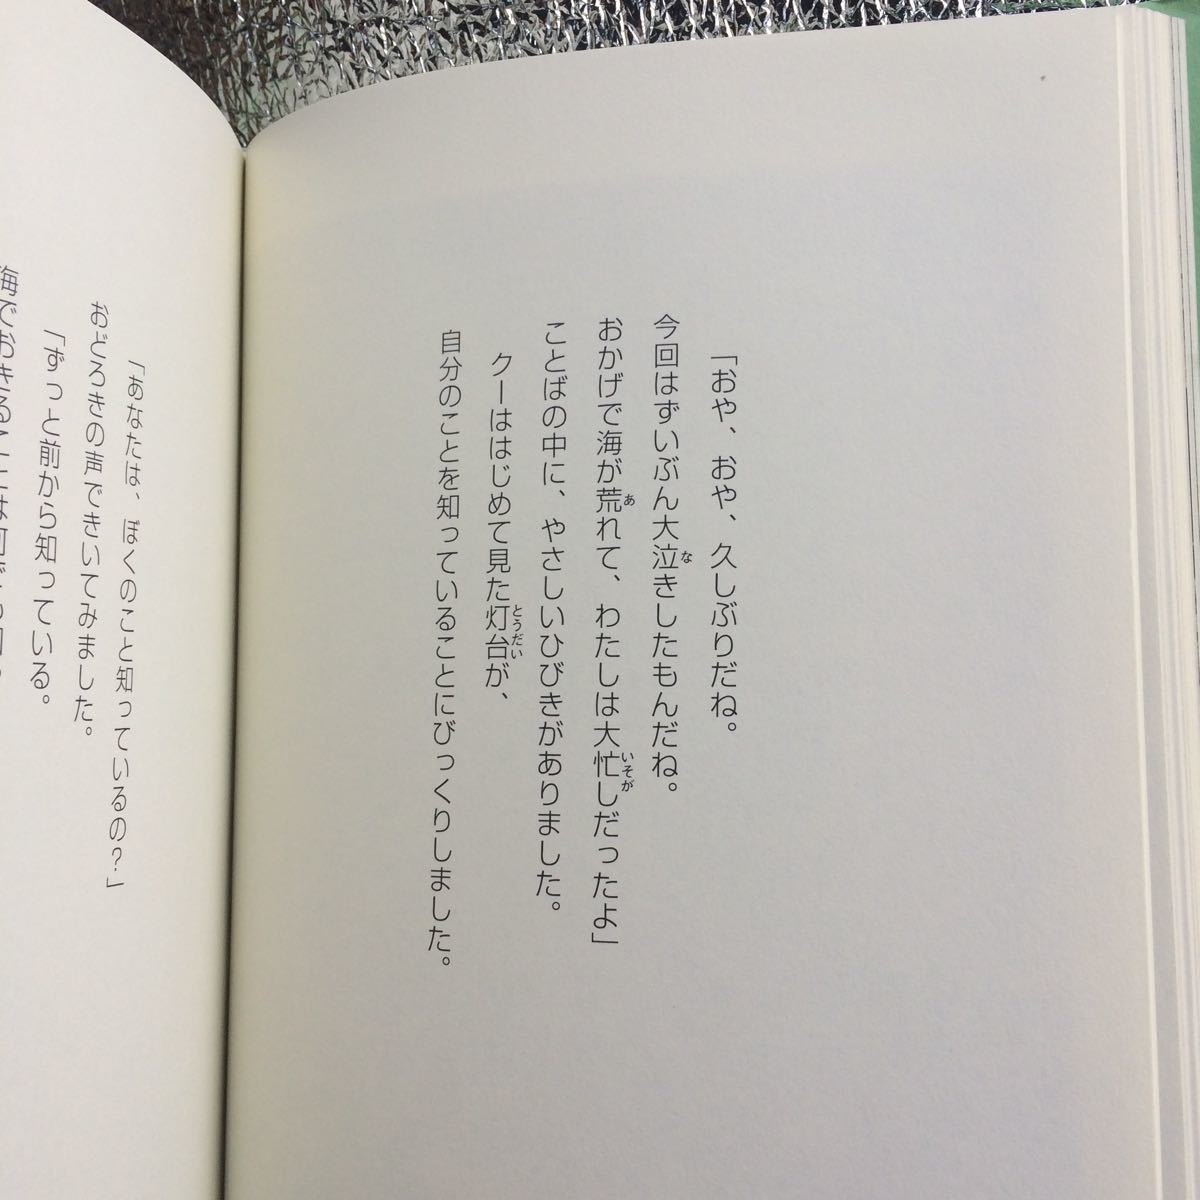 「おや、おや、久しぶりだね。
今回はずいぶん大泣きしたもんだね。
おかげで海が荒れて、わたしは大忙しだったよ」
ことばの中に、やさしいひびきがありました。
クーははじめて見た灯台が、
自分のことを知っていることにびっくりしました。
「あなたは、ぼくのこと知っているの?」
おどろきの声できいてみました。
「ずっと前から知っている。
海でおきることは何でも知っ